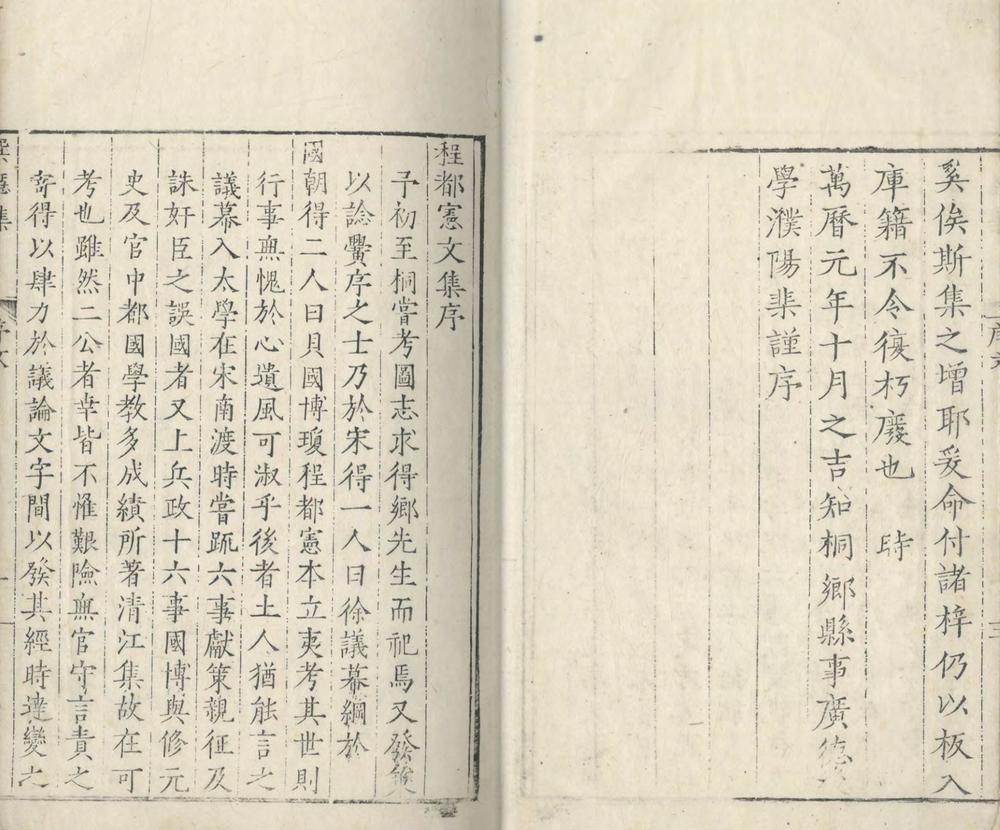 奚俟斯集之增耶爰命付諸梓仍以板入
庫籍不令復朽廢也 時
萬曆元年十月之吉知桐鄉縣事廣德
學濮陽棐謹序
程都憲文集序
予初至桐嘗考圖志求得鄉先生而祀焉又發策
以諗黌序之士乃於宋得一人曰徐議幕綱於
國朝得二人曰貝國博瓊程都憲本立夷考其世則
行事無愧於心遺風可淑乎後者土人猶能言之
議幕入太學在宋南渡時嘗䟽六事獻策親征及
誅奸臣之誤國者又上兵政十六事國博與修元
史及官中都國學教多成績所著清江集故在可
考也雖然二公者幸皆不惟艱險無官守言責之
寄得以肆力於議論文字間以發其經時達變之